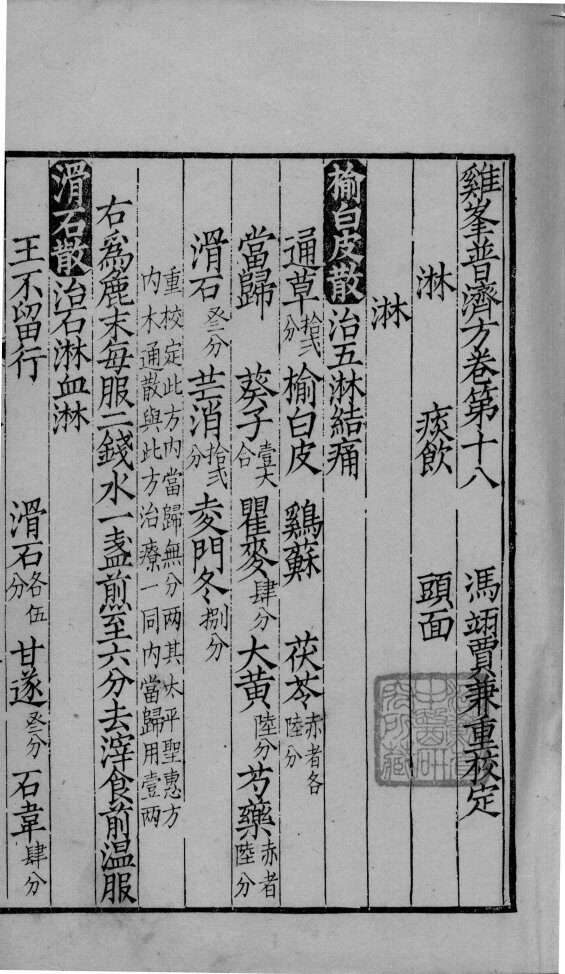 雞峯普濟方卷第十八　馮翊賈兼重校定
淋　痰飲　頭面
淋
榆白皮散治五淋結痛
通草拾弍分　榆白皮　鷄蘇　茯苓赤者各陸分
當歸　葵子壹大合　瞿麥肆分　大黃陸分　芍藥赤者陸分
滑石叄分　芒消拾弍分　麦門冬捌分
重校定此方内當歸無分两其太平聖惠方
内木通散與此方治療一同内當歸用壹两
右爲麄末每服二錢水一盞煎至六分去滓食前温服
滑石散治石淋血淋
王不留行　滑石各伍分　甘遂叄分　石韋肆分